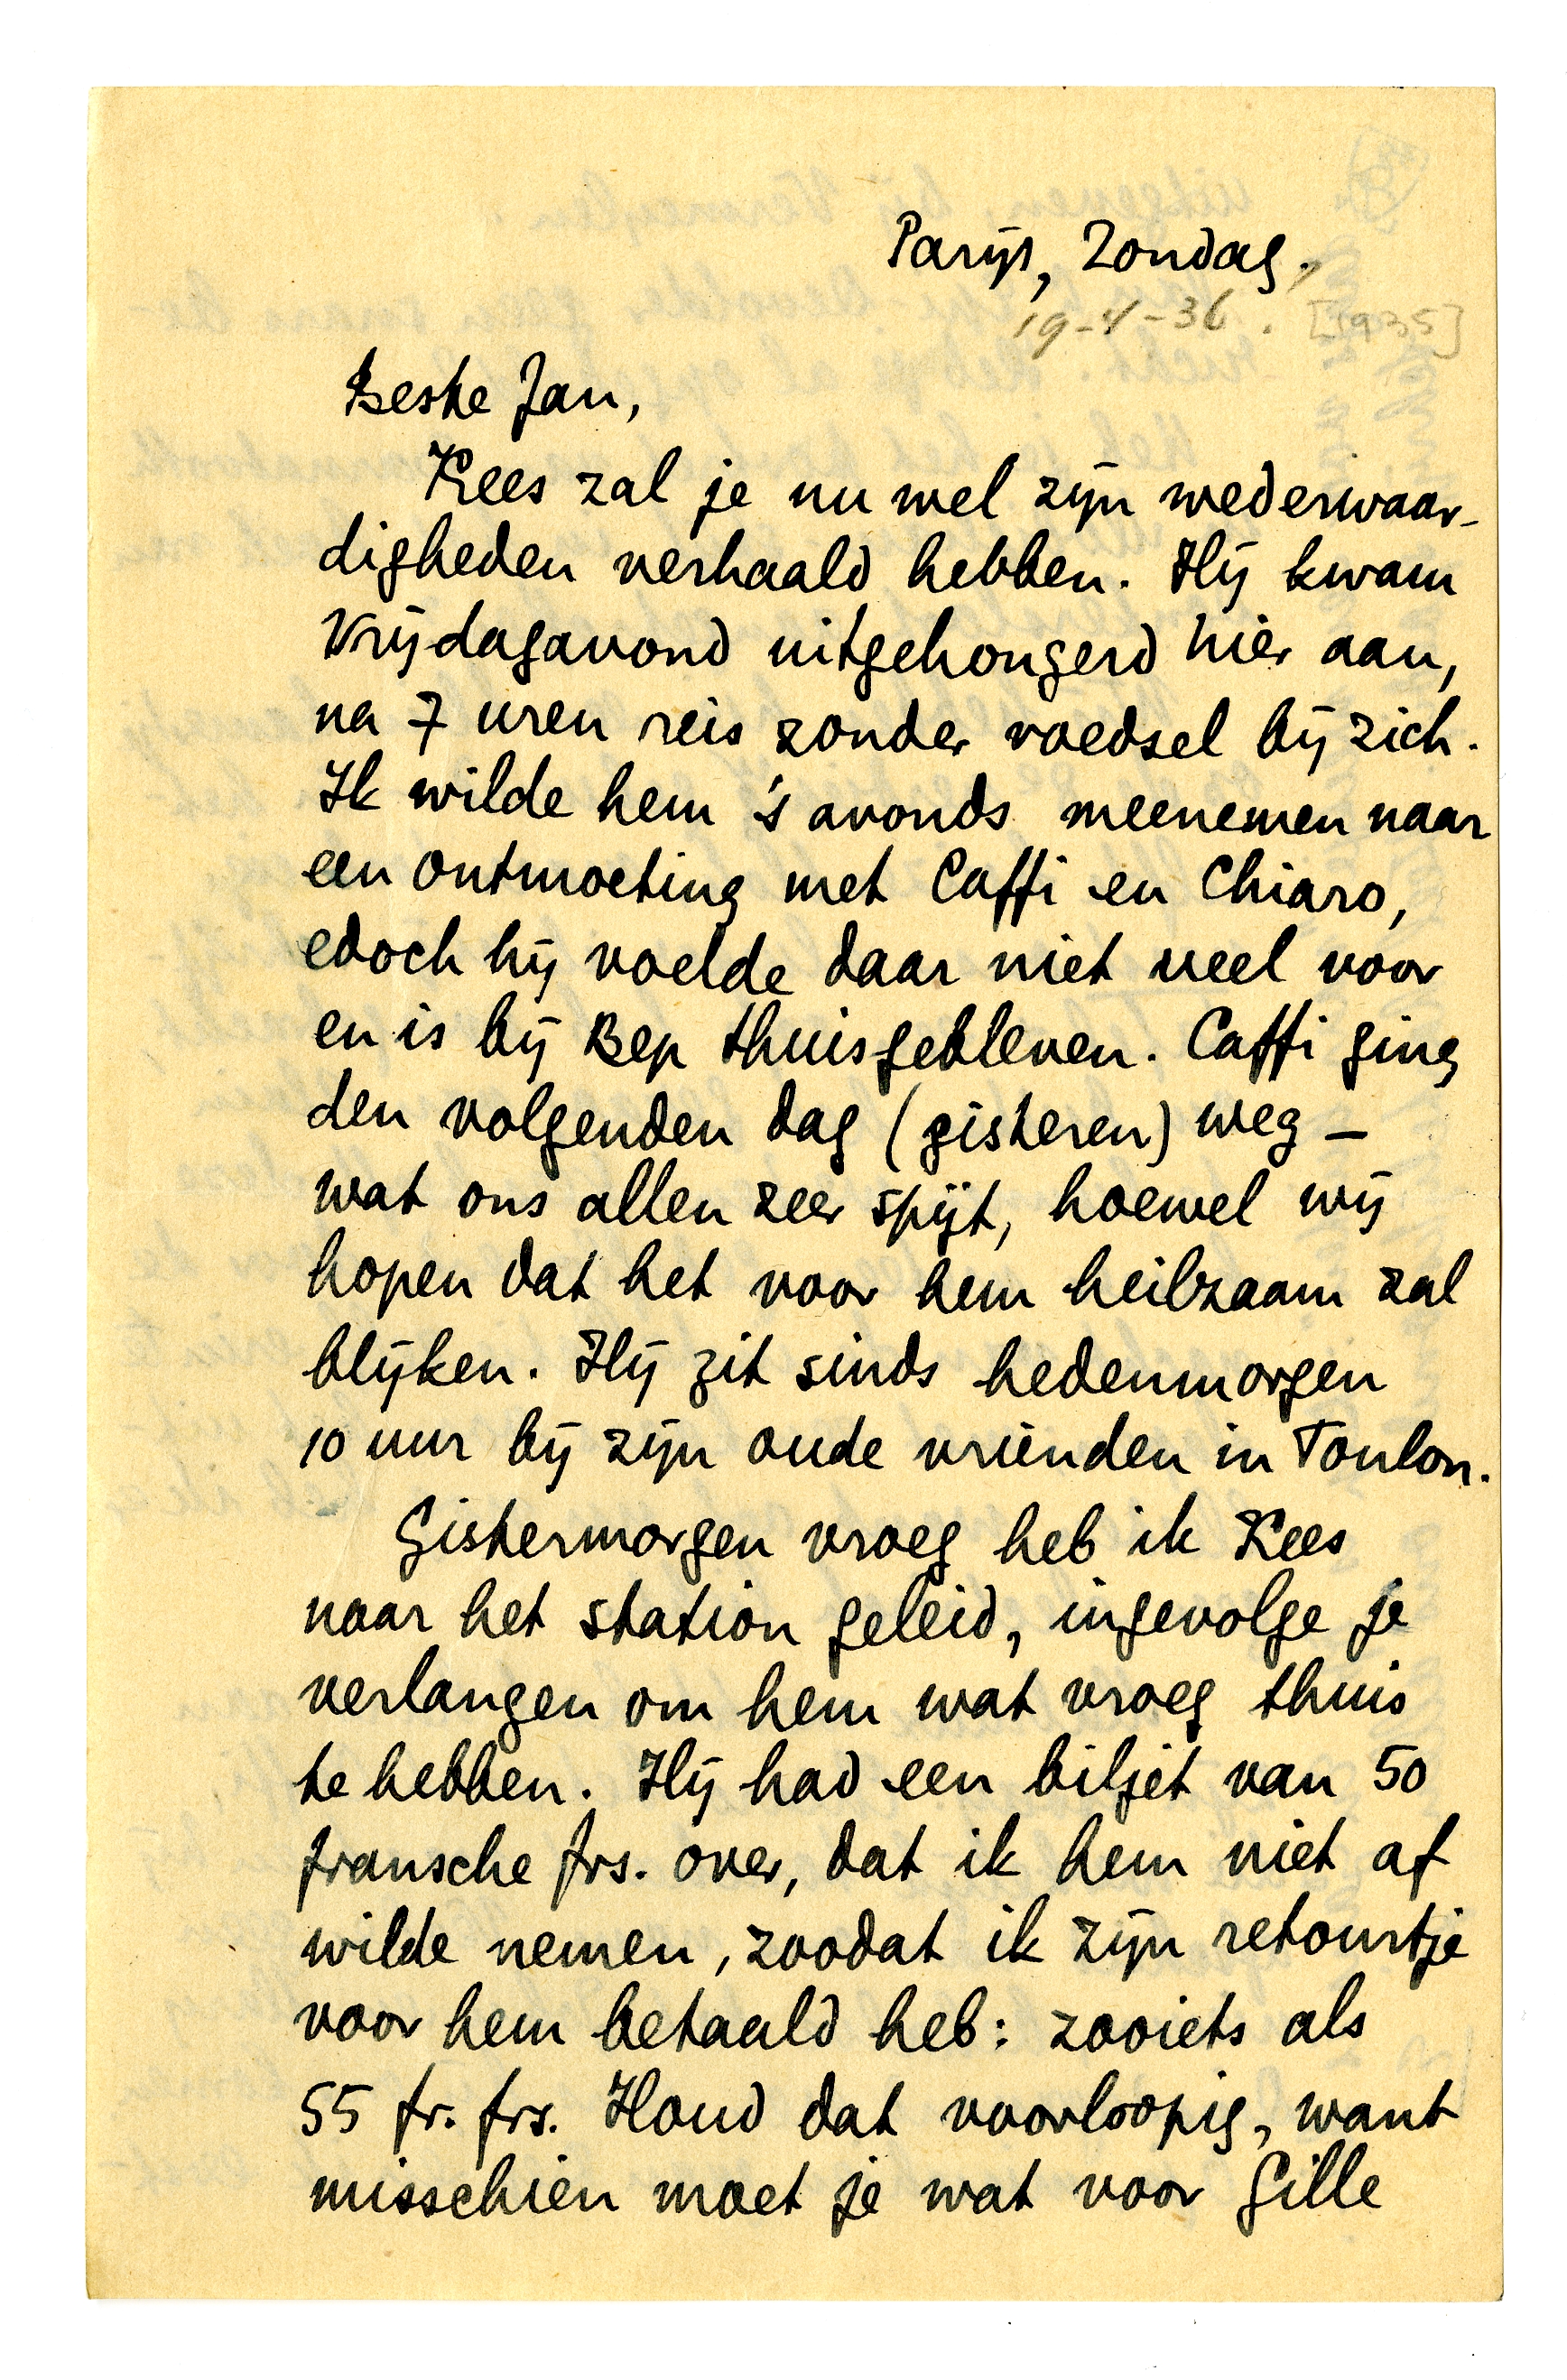 Parijs, Zondag.
19-4-36. [1935]
Beste Jan,
Kees zal je nu wel zijn wederwaar-
digheden verhaald hebben. Hij kwam
Vrijdagavond uitgehongerd hier aan,
na 7 uren reis zonder voedsel bij zich.
Ik wilde hem 's avonds meenemen naar
een ontmoeting met Caffi en Chiaro,
edoch hij voelde daar niet veel voor
en is bij Bep thuisgebleven. Caffi ging
den volgenden dag (gisteren) weg –
wat ons allen zeer spijt, hoewel wij
hopen dat het voor hem heilzaam zal
blijken. Hij zit sinds hedenmorgen
10 uur bij zijn oude vrienden in Toulon.
Gistermorgen vroeg heb ik Kees
naar het station geleid, ingevolge je
verlangen om hem wat vroeg thuis
te hebben. Hij had een biljet van 50
fransche frs. over, dat ik hem niet af
wilde nemen, zoodat ik zijn retourtje
voor hem betaald heb: zooiets als
55 fr. frs. Houd dat voorloopig, want
misschien moet je wat voor Gille